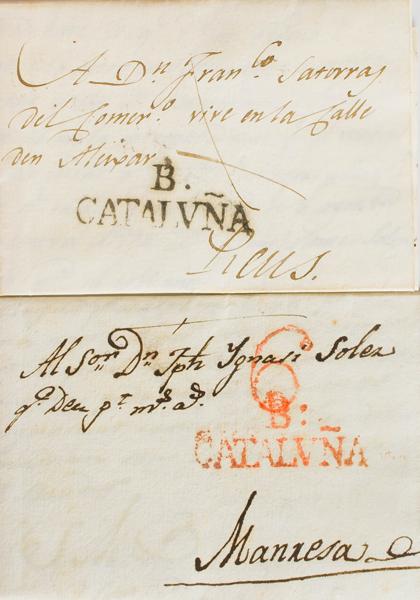 A Dn Franco. Satorras
del Comero. vive en la Calle
den Aleixar
B.
CATALVÑA
Reus.
Al Sor. Dn Jph Ygnasi Soler
qe. Deu gt. ms. as.
6
B:
CATALVÑA
Manresa